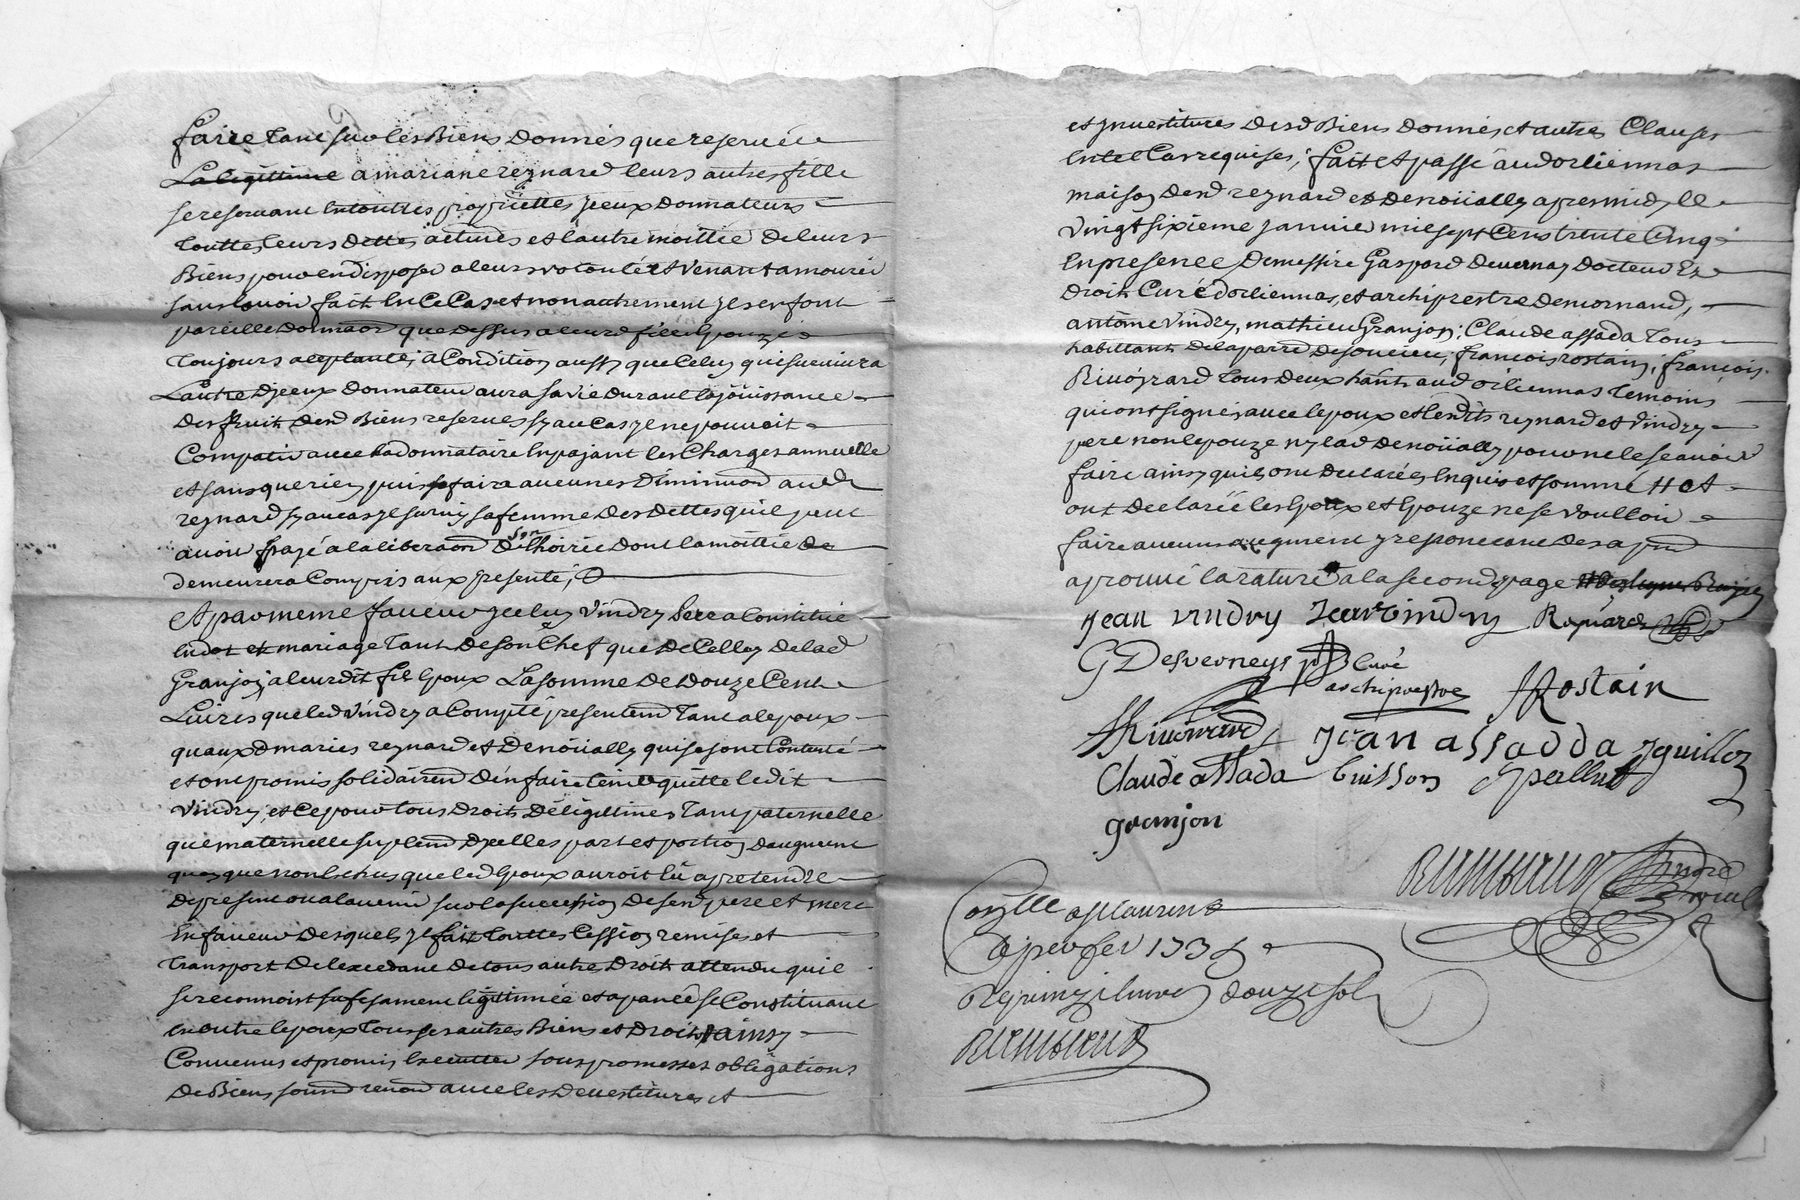 faire tant sur les Biens Donnés que reservée
La legittime a mariane reynard leurs autres fille
se reservant en touttes proprietés jceux Donnateurs
touttes leurs dettes actives et lautre moittié de leurs
Biens pour en disposer a leurs volonté et venant a mourir
sans lavoir fait en ce Cas et non autrement jls en font
pareille donnaon que dessus a leurd fille Epouze
toujours aceptante, a Condition aussy que Celuy qui surviura
Lautre djceux donnateur aura sa vie durant la jouissance
des fruits desd Biens reserves sy au cas jl ne pouvoit
Compatir avec la donnataire en pajant les Charges annuelle
et sans que rien puisse faire aucunes Diminuon aud
reynard sy au cas jl survis sa femme des dettes quil peut
avoir payé a la liberaon de son hoirie dont la moittié
demeurera Compris aux presente,
Et par meme faveur jceluy vindry pere a Constitué
en dot et mariage tant de son Chef que de Celluy de lad
Granjon, a leurdit fils Epoux La somme de douze Cent
Livres que led vindry a Compté presentemt tant a lepoux
quaux d maries reynard et denoüally qui se sont Contenté
et ont promis solidairemt den faire tenir quitte ledit
vindry, et ce pour tous droits de legittimes tant paternelle
que maternelle suplemt djcelles part et portion daugment
quoy que non Echus que led Epoux auroit eü a pretendre
de present ou alavenir sur la succession de sesd pere et mere
En faveur desquels jl fait touttes Cession remise et
transport de lexcedant de tous autres droits attendu quil
se reconnoist sufisament legittimée et apanée se Constituant
en outre lepoux tous ses autres Biens et droits, ainsy
Convenus et promis Executter sous promesses obligations
de Biens soumd renond avec les devestitures et
et jnvestitures desd Biens donnés et autres Clauses
En tel Cas requises, fait et passé audorliennas
maison desd reynard et denoüally apres midy le
vingt sixieme janvier mil sept Cens trente Cinq
En presence de messire Gaspard devernay docteur Ez
droits Curé dorliennas, et archiprestre de mornand,
antoine vindry, mathieu Granjon, Claude assada tous
habittants de la parre de soucieu, francois rostain, francois
Rivoyrard tous deux hants aud orliennas temoins
qui ont signés avec lepoux et lesdits reynard et vindry
pere non lepouze ny lad denoüally pour ne le scavoir
faire ainsy quils ont declarées enquis et sommé # et
ont declarée les Epoux et Epouze ne se voulloir
faire aucuns augment
aprouvé la rature a la seconde page
jean vindry Jean vindry Reynard
G Desverneys Curé
archiprestre fRostain
fRivoirard Jean assadda Jguillon
Claude assada buisson
granjon
Conlle a St Laurent
le jer fer 1735
Reçu douze sols